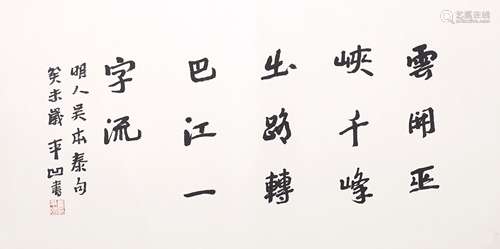 雲開巫
峽千峰
出路轉
巴江一
字流
明人吴本泰句
癸未歲平凹書